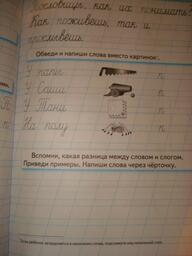 Пословицы, как их понимать?
Как поживёшь, так и
прослывёшь.
Обведи и напиши слова вместо картинок.
У папы п
У Саши п
У Тани п
На полу п
Вспомни, какая разница между словом и слогом.
Приведи примеры. Напиши слова через чёрточку.